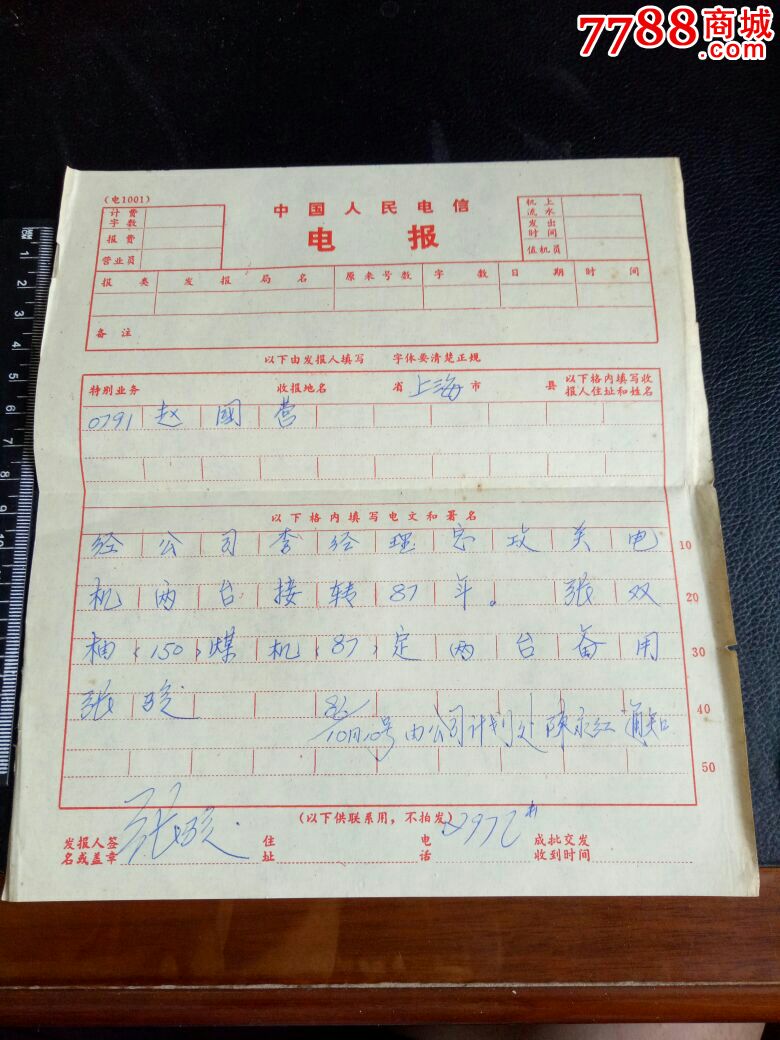 7788商城
.com
(电1001)
中国人民电信
电 报
计费字数
报费
营业员
机上流水
发出时间
值机员
报类 发报局名 原来号数 字数 日期 时间
备注
以下由发报人填写 字体要清楚正规
特别业务 收报地名 省 上海 市 县 以下格内填写收报人住址和姓名
0791 赵 國 营
以下格内填写电文和署名
经 公 司 李 经 理 总 攻 关 电 10
机 两 台 接 转 87 年。 张 双 20
柚〈150〉煤 机〈87〉定 两 台 备 用 30
张 骏 86/ 40
10月10号由公司计划处陈永红通知
50
(以下供联系用,不拍发)
发报人签名或盖章 张骏 住址 电话 成批交发收到时间